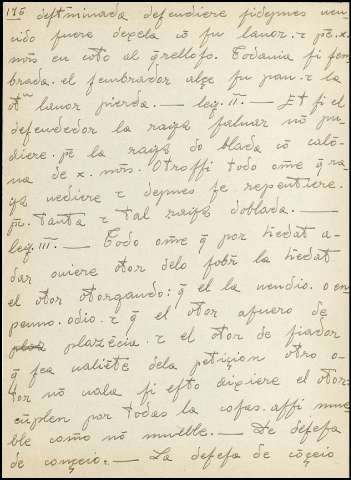 175 determinada defendiere sidepues uen-
cido fuere dexela cõ su lauor. τ pc̃. x.
mr̃s en coto al q̃relloso. Todauia si sem
brada. el sembrador alçe su pan. τ la
ot̃ª lauor pierda. — ley. II. — Et si el
defendedor la rayz saluar nõ pu-
diere. pc̃ la rayz doblada cõ calõ-
na de x. mr̃s. Otrossi todo om̃e q̃ ra-
yz uediere τ depues se repentiere.
pc̃. tanta τ tal rayz doblada. —
ley. III. — Todo om̃e q̃ por h̃edat a-
dar ouiere otor delo sobr̃ la h̃edat
el otor otorgando: q̃ el la uendio. o en
penno. o dio. τ q̃ el otor afuero de
plazẽcia. τ el otor de fiador
q̃ sea ualiẽte dela peticion otro o-
tor nõ uala si esto dixiere el otor:
cũplen por todas la cosas. assi mue
ble como nõ mueble. — De defesa
de conçeio. — La defesa de cõçeio